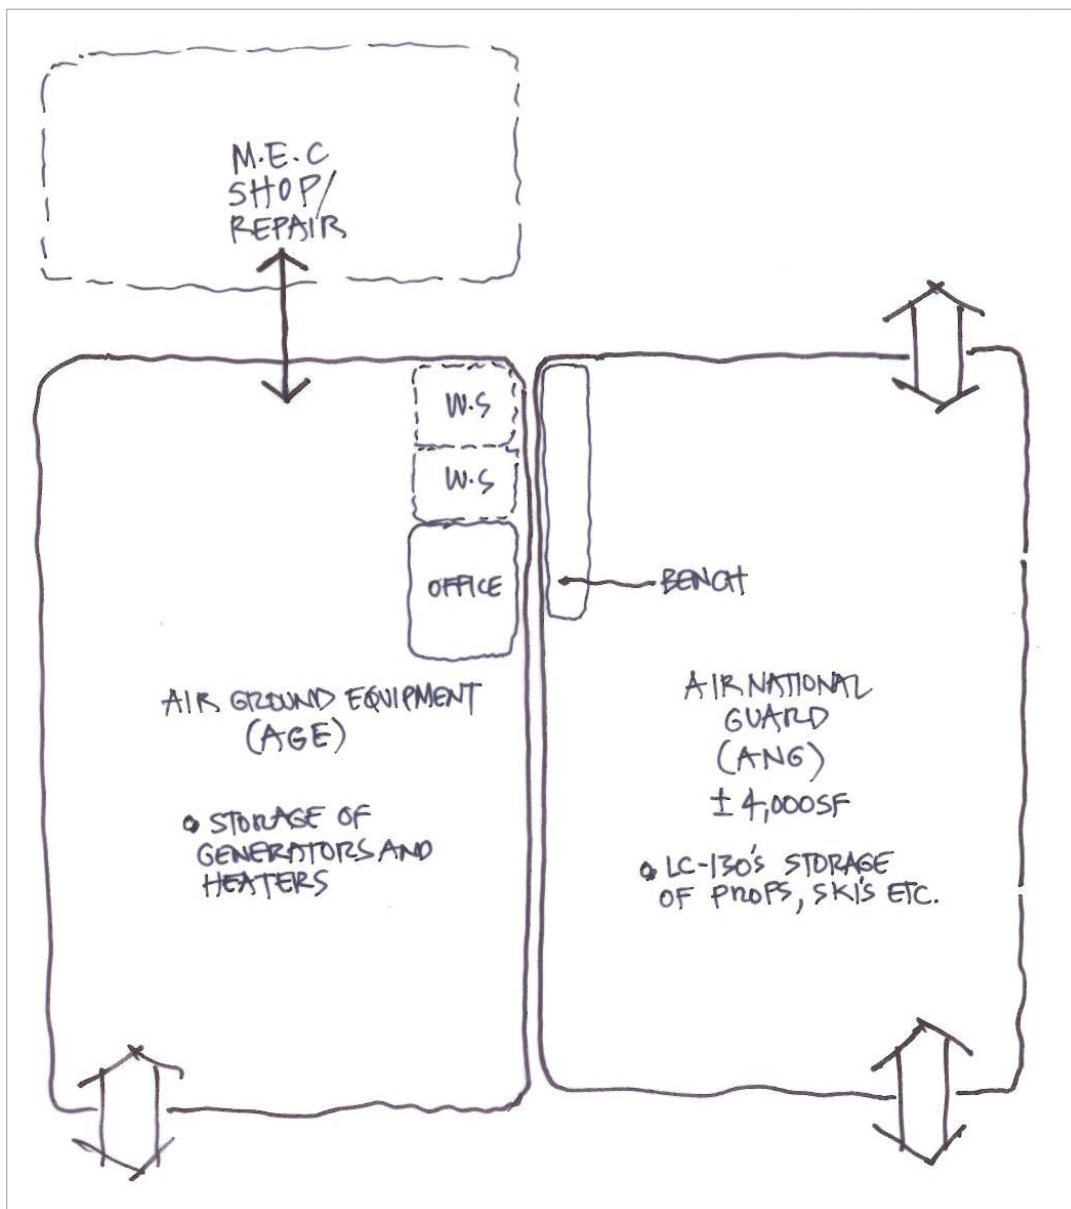 M.E.C
SHOP/
REPAIR
W.S
W.S
OFFICE
BENCH
AIR GROUND EQUIPMENT
(AGE)
• STORAGE OF
GENERATORS AND
HEATERS
AIR NATIONAL
GUARD
(ANG)
± 4,000SF
• LC-130's STORAGE
OF PROPS, SKI'S ETC.